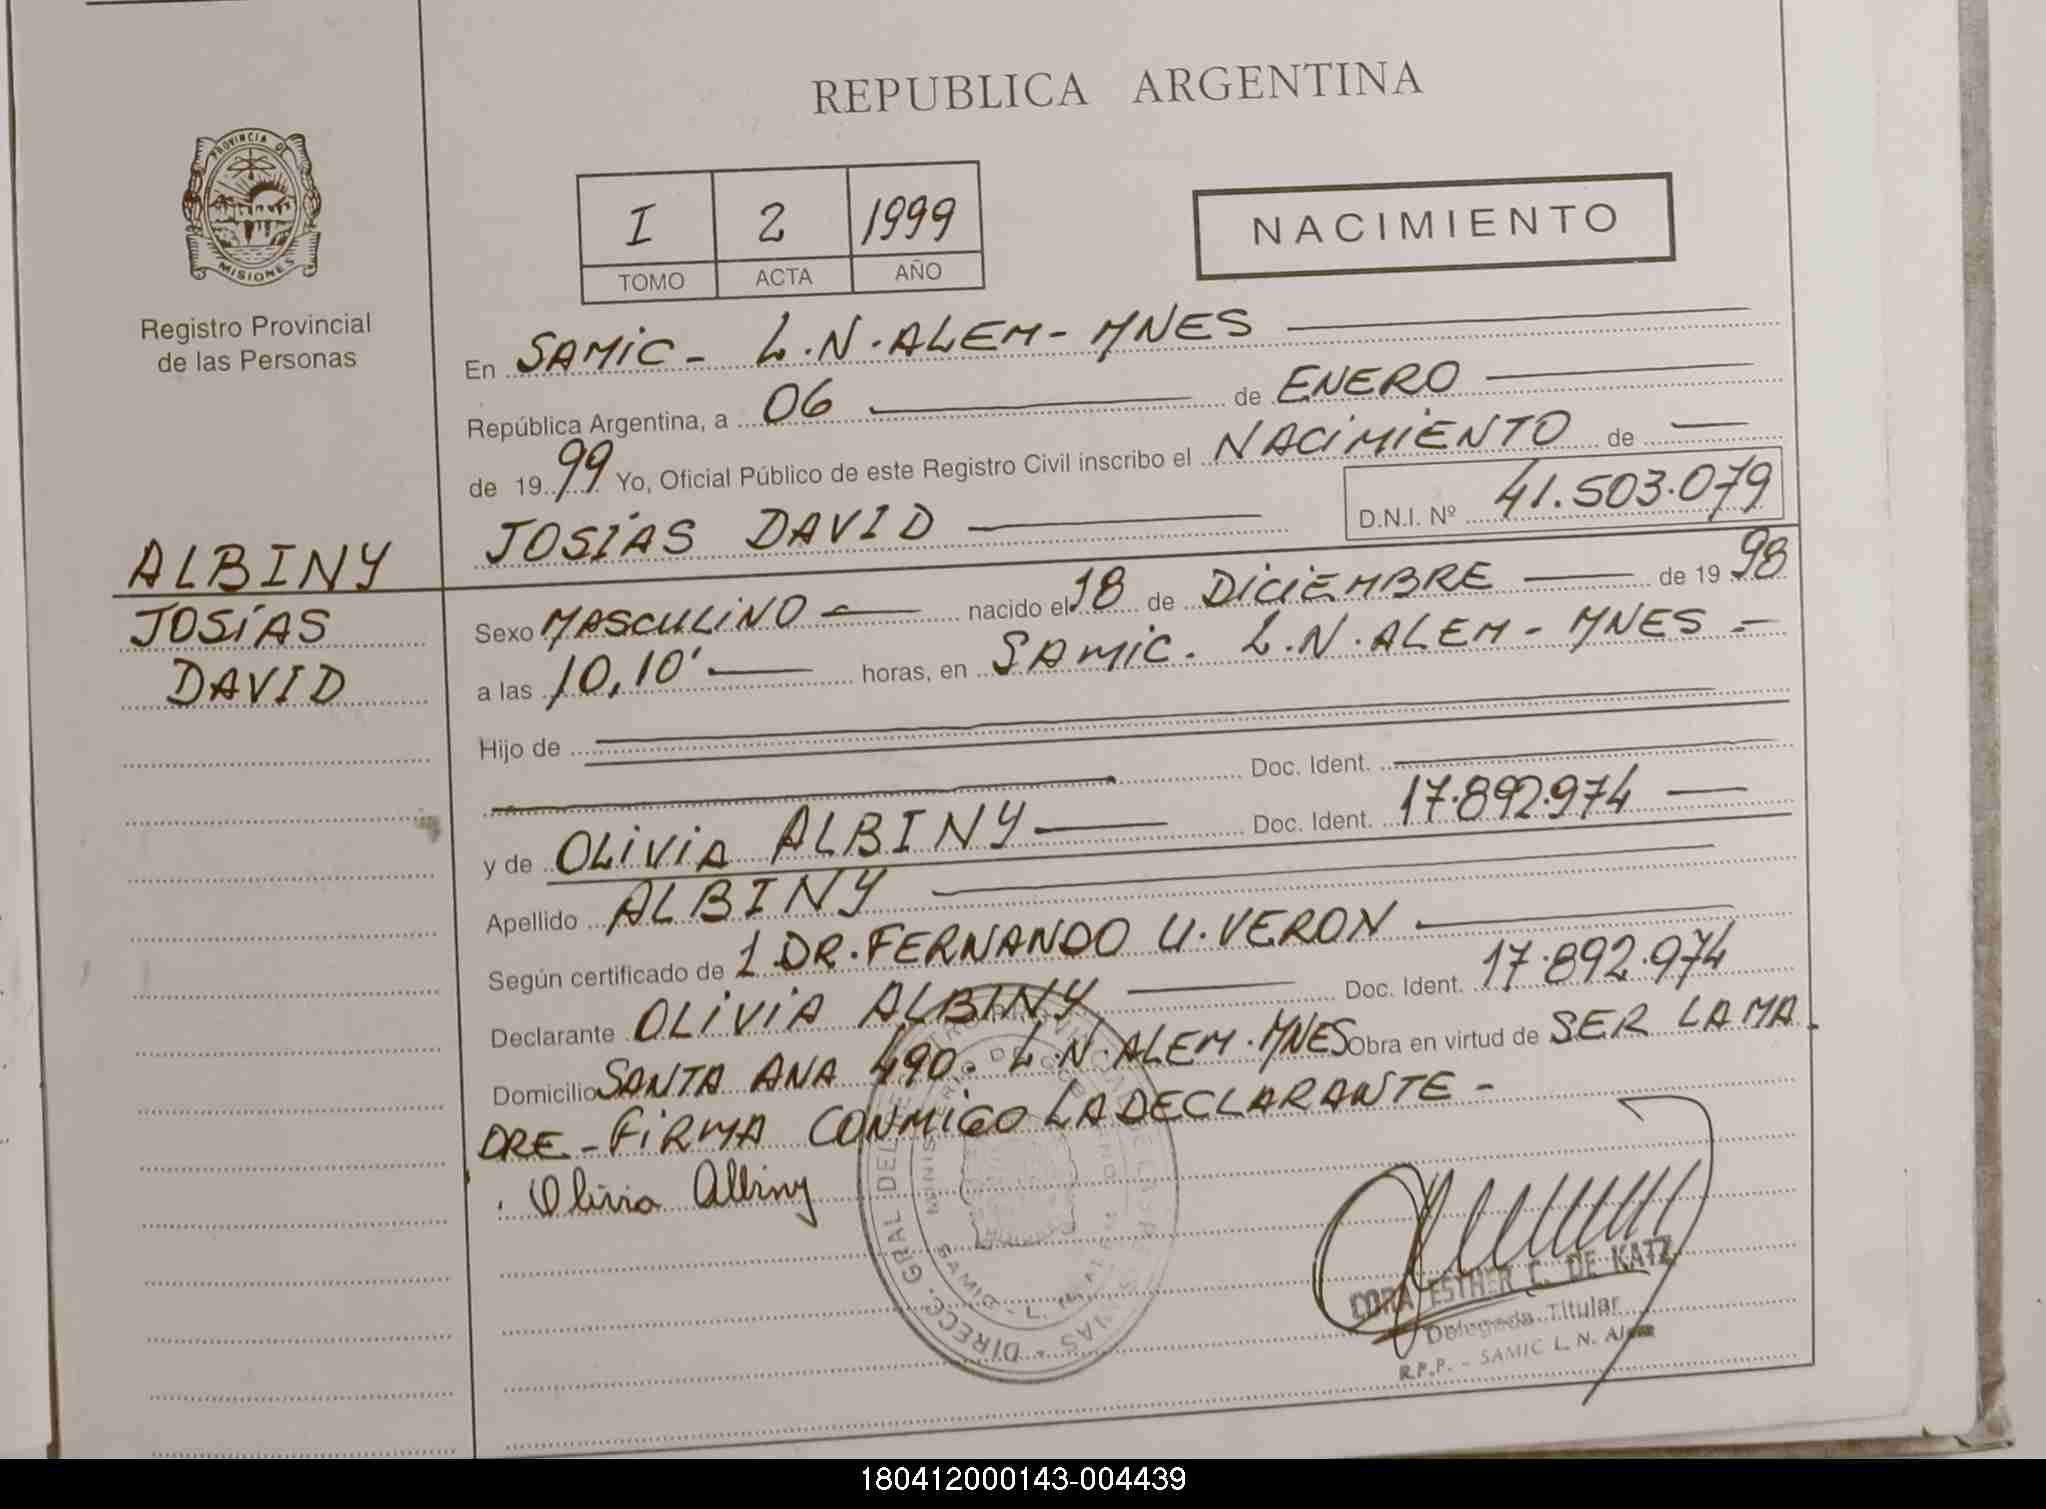 REPUBLICA ARGENTINA
PROVINCIA DE
MISIONES
Registro Provincial
de las Personas
I 2 1999
TOMO ACTA AÑO
NACIMIENTO
En SAMIC - L.N. ALEM - MNES
República Argentina, a 06 de ENERO
de 1999 Yo, Oficial Público de este Registro Civil inscribo el NACIMIENTO de
JOSÍAS DAVID D.N.I. Nº 41.503.079
ALBINY
JOSÍAS
DAVID
Sexo MASCULINO nacido el 18 de DICIEMBRE de 1998
a las 10,10' horas, en SAMIC. L.N. ALEM - MNES -
Hijo de
Doc. Ident.
y de OLIVIA ALBINY Doc. Ident. 17.892.974
Apellido ALBINY
Según certificado de 1 DR. FERNANDO U. VERON
Declarante OLIVIA ALBINY Doc. Ident. 17.892.974
Domicilio SANTA ANA 490. L.N. ALEM. MNES Obra en virtud de SER LA MA
DRE - FIRMA CONMIGO LA DECLARANTE -
Olivia Albiny
DIRECC. GRAL DEL
SAMIC - L. N. ALEM
CORA ESTHER C. DE KATZ
Delegada Titular
R.P.P. - SAMIC L. N. Alem
180412000143-004439